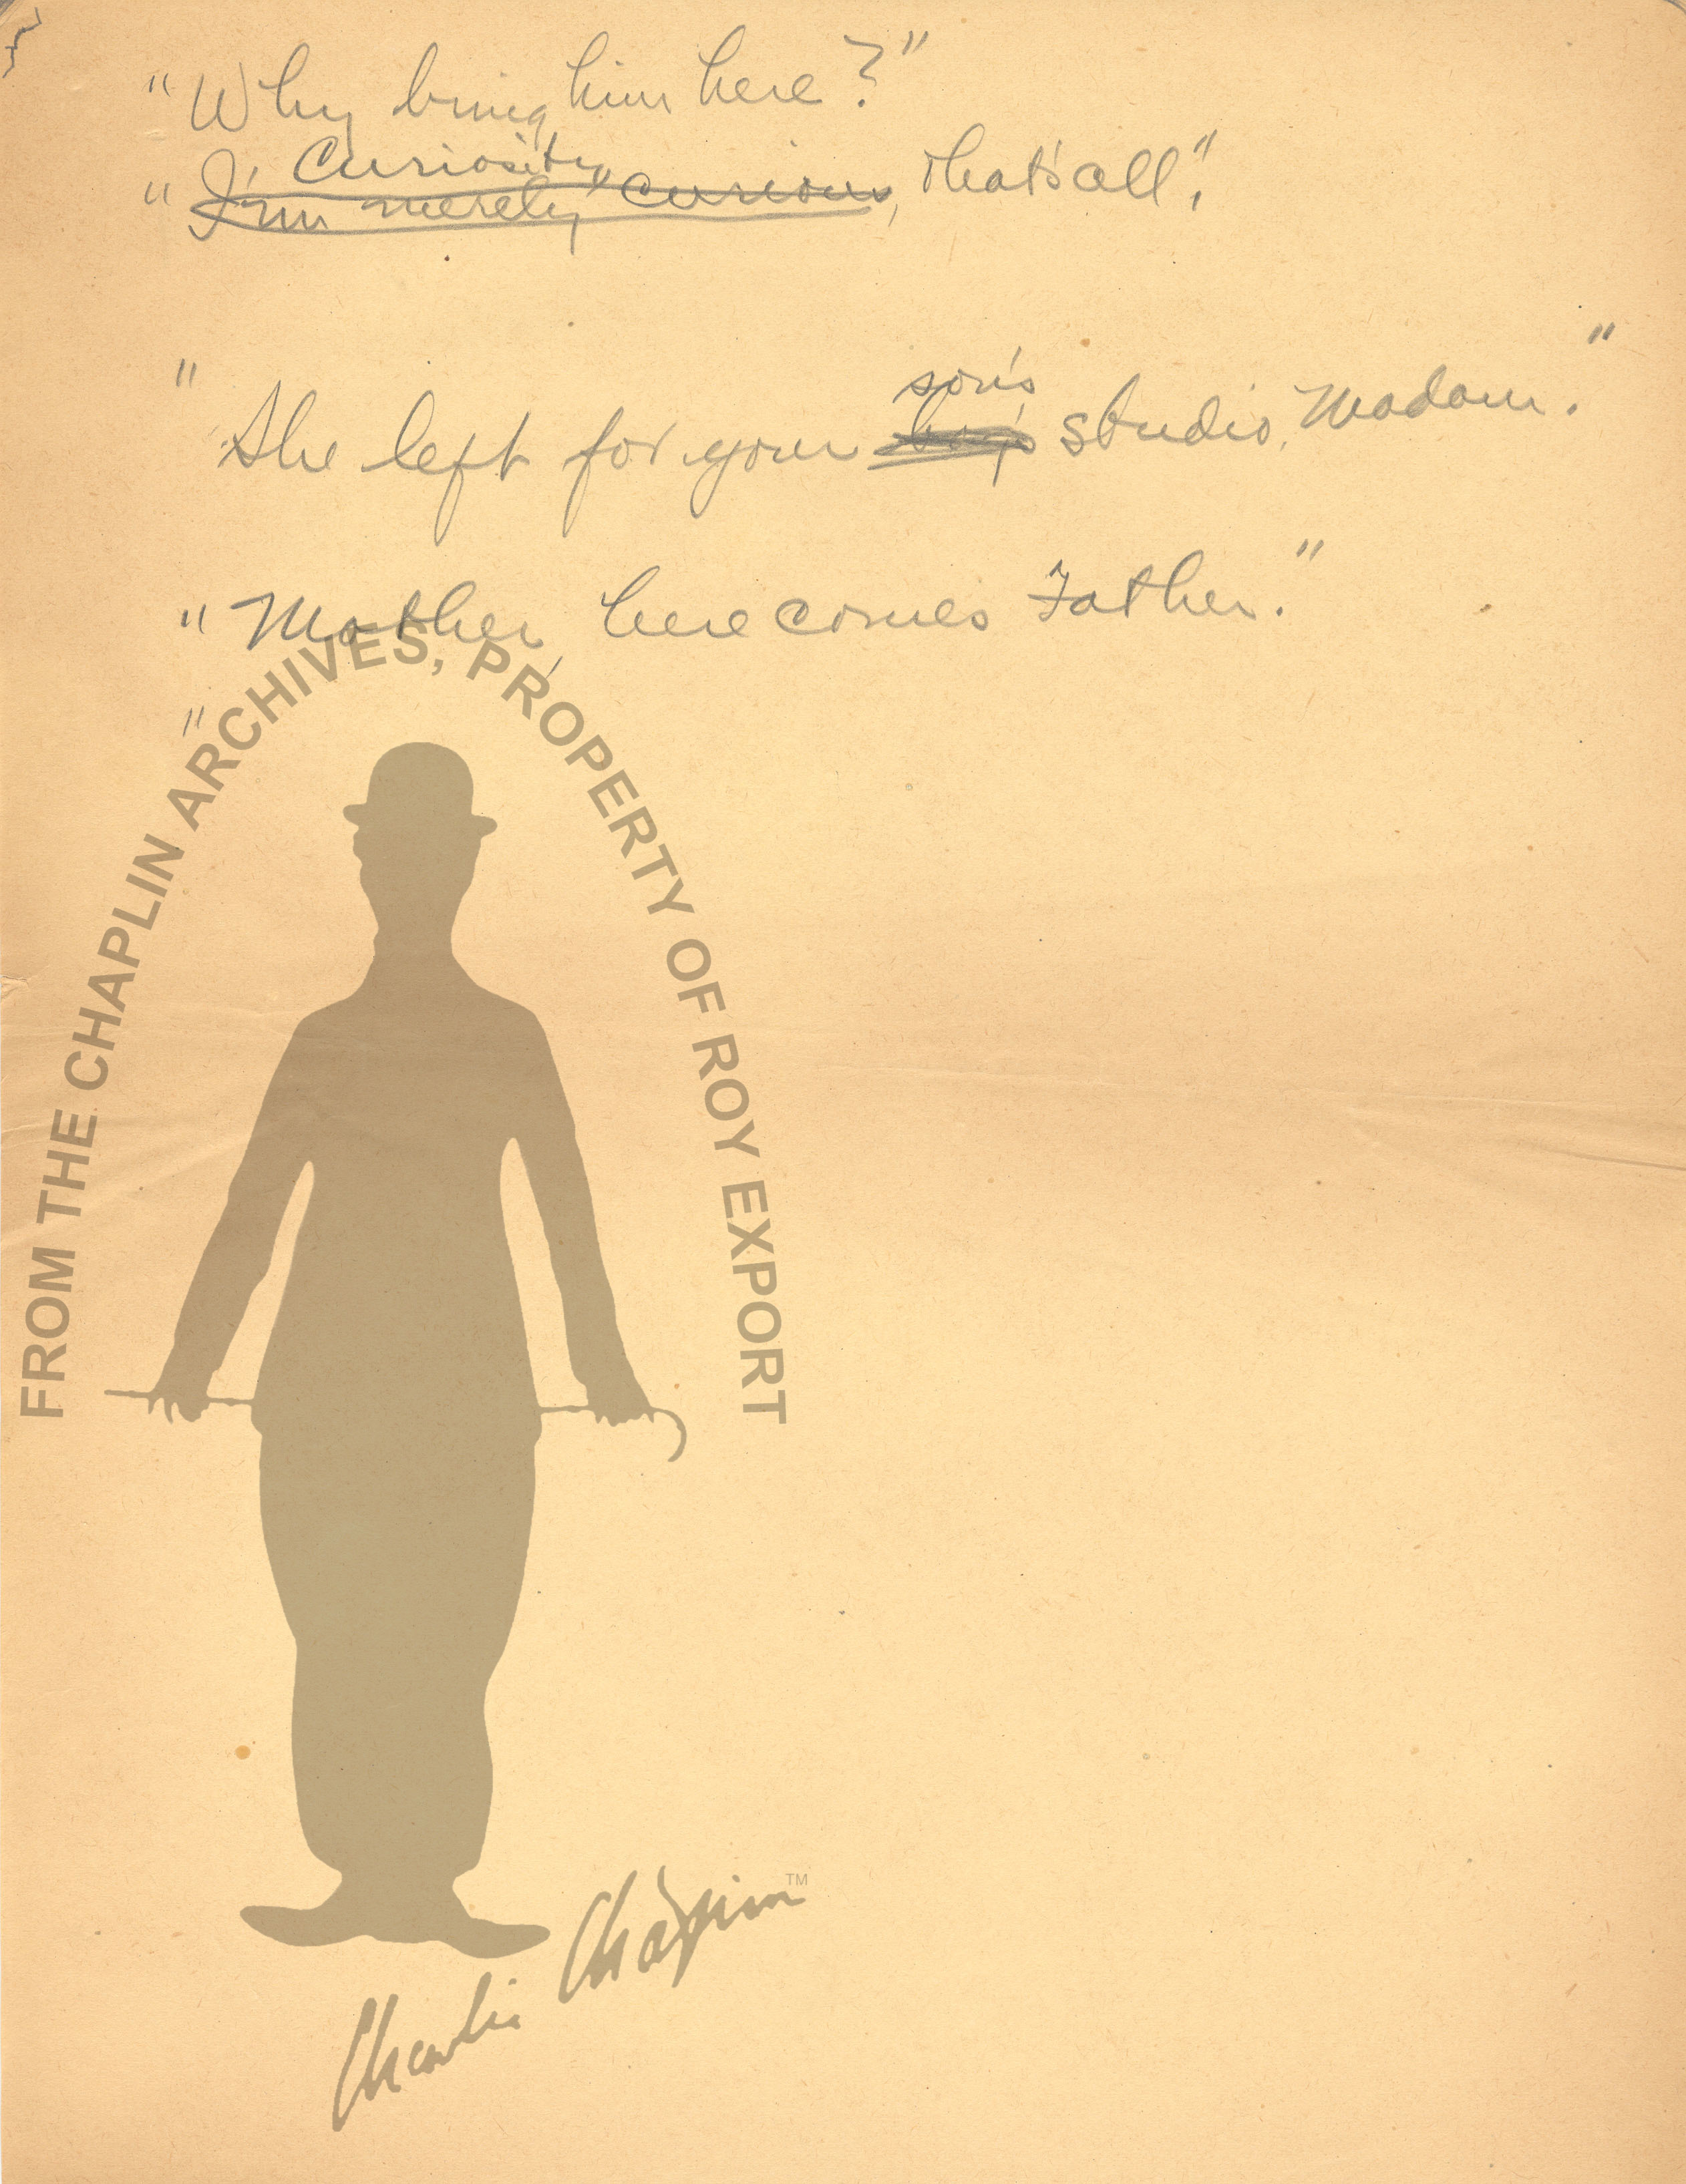 "Why bring him here?"
Curiosity,
"I'm merely curious, that's all".
son's
"She left for your boy's studio, Madam."
"Mother, here comes Father."
"
FROM THE CHAPLIN ARCHIVES, PROPERTY OF ROY EXPORT
Charlie Chaplin TM